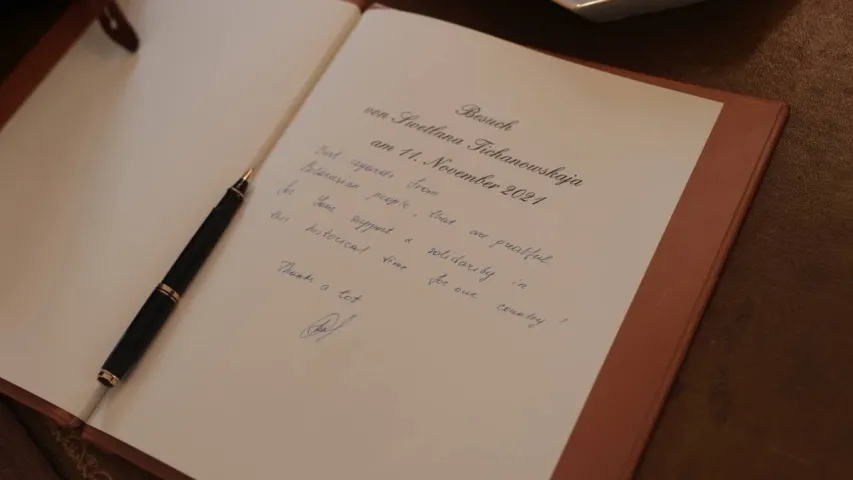 Besuch
von Swetlana Tichanowskaja
am 11. November 2021
Best regards from
Belarusian people, that are greatful
for Your support & solidarity in
this historical time for our country!
Thank a lot